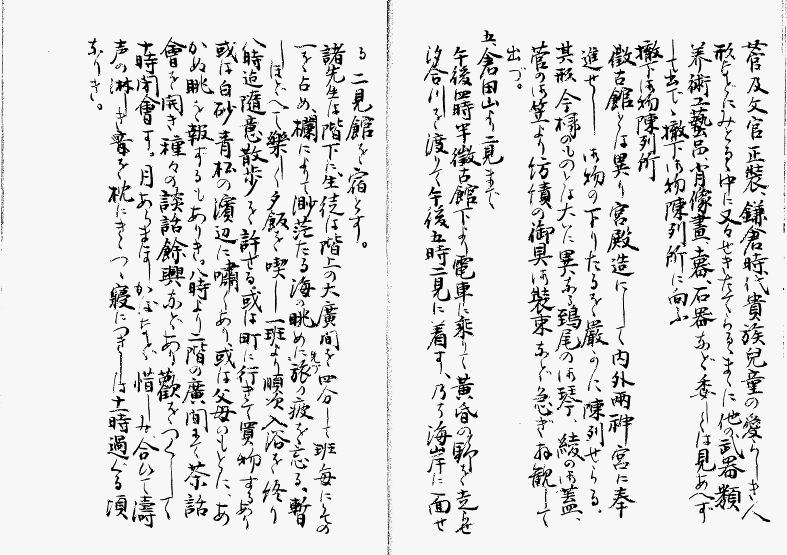 菅及文官正装、鎌倉時代貴族児童の愛らしき人
形などにみとるゝ中に又せきたてらるゝまゝに他の武器類
美術工藝品、肖像畫、墓、石器など委しくは見あへず
して出でゝ撤下御物陳列所に向ふ
撤下御物陳列所
徴古館とは異り宮殿造にして内外両神宮に奉
進せし御物の下りたるを厳かに陳列せらる。
其形今様のものとは大いに異なる鵄尾の御琴、綾の御蓋、
菅の御笠より紡績の御具御装束など急ぎ拝観して
出づ。
五、倉田山より二見まで
午後四時半徴古館下より電車に乗じて黄昏の野を走らせ
汐合川を渡りて午後五時二見に着す、乃ち海岸に面せ
る二見館を宿とす。
諸先生は階下に生徒は階上の大廣間を四分して班毎にその
一を占め、欄によて渺茫たる海の眺めに先づ旅の疲を忘る。暫
しほどへて樂しく夕飯を喫し一班より順次入浴を終り
八時迄隨意散歩を許せる、或は町に行きて買物するあり
或は白砂青松の濱辺に嘯くあり、或は父母のもとに、あ
かぬ眺を報ずるもありき。八時より二階の廣間にて茶話
會を開き種々の談話餘興などあり歡をつくして
十時閉會す。月あらましかばなど惜しみ合ひて濤
声の淋しき音を枕にきゝつゝ寢につきしは十一時過ぐる頃
なりき。